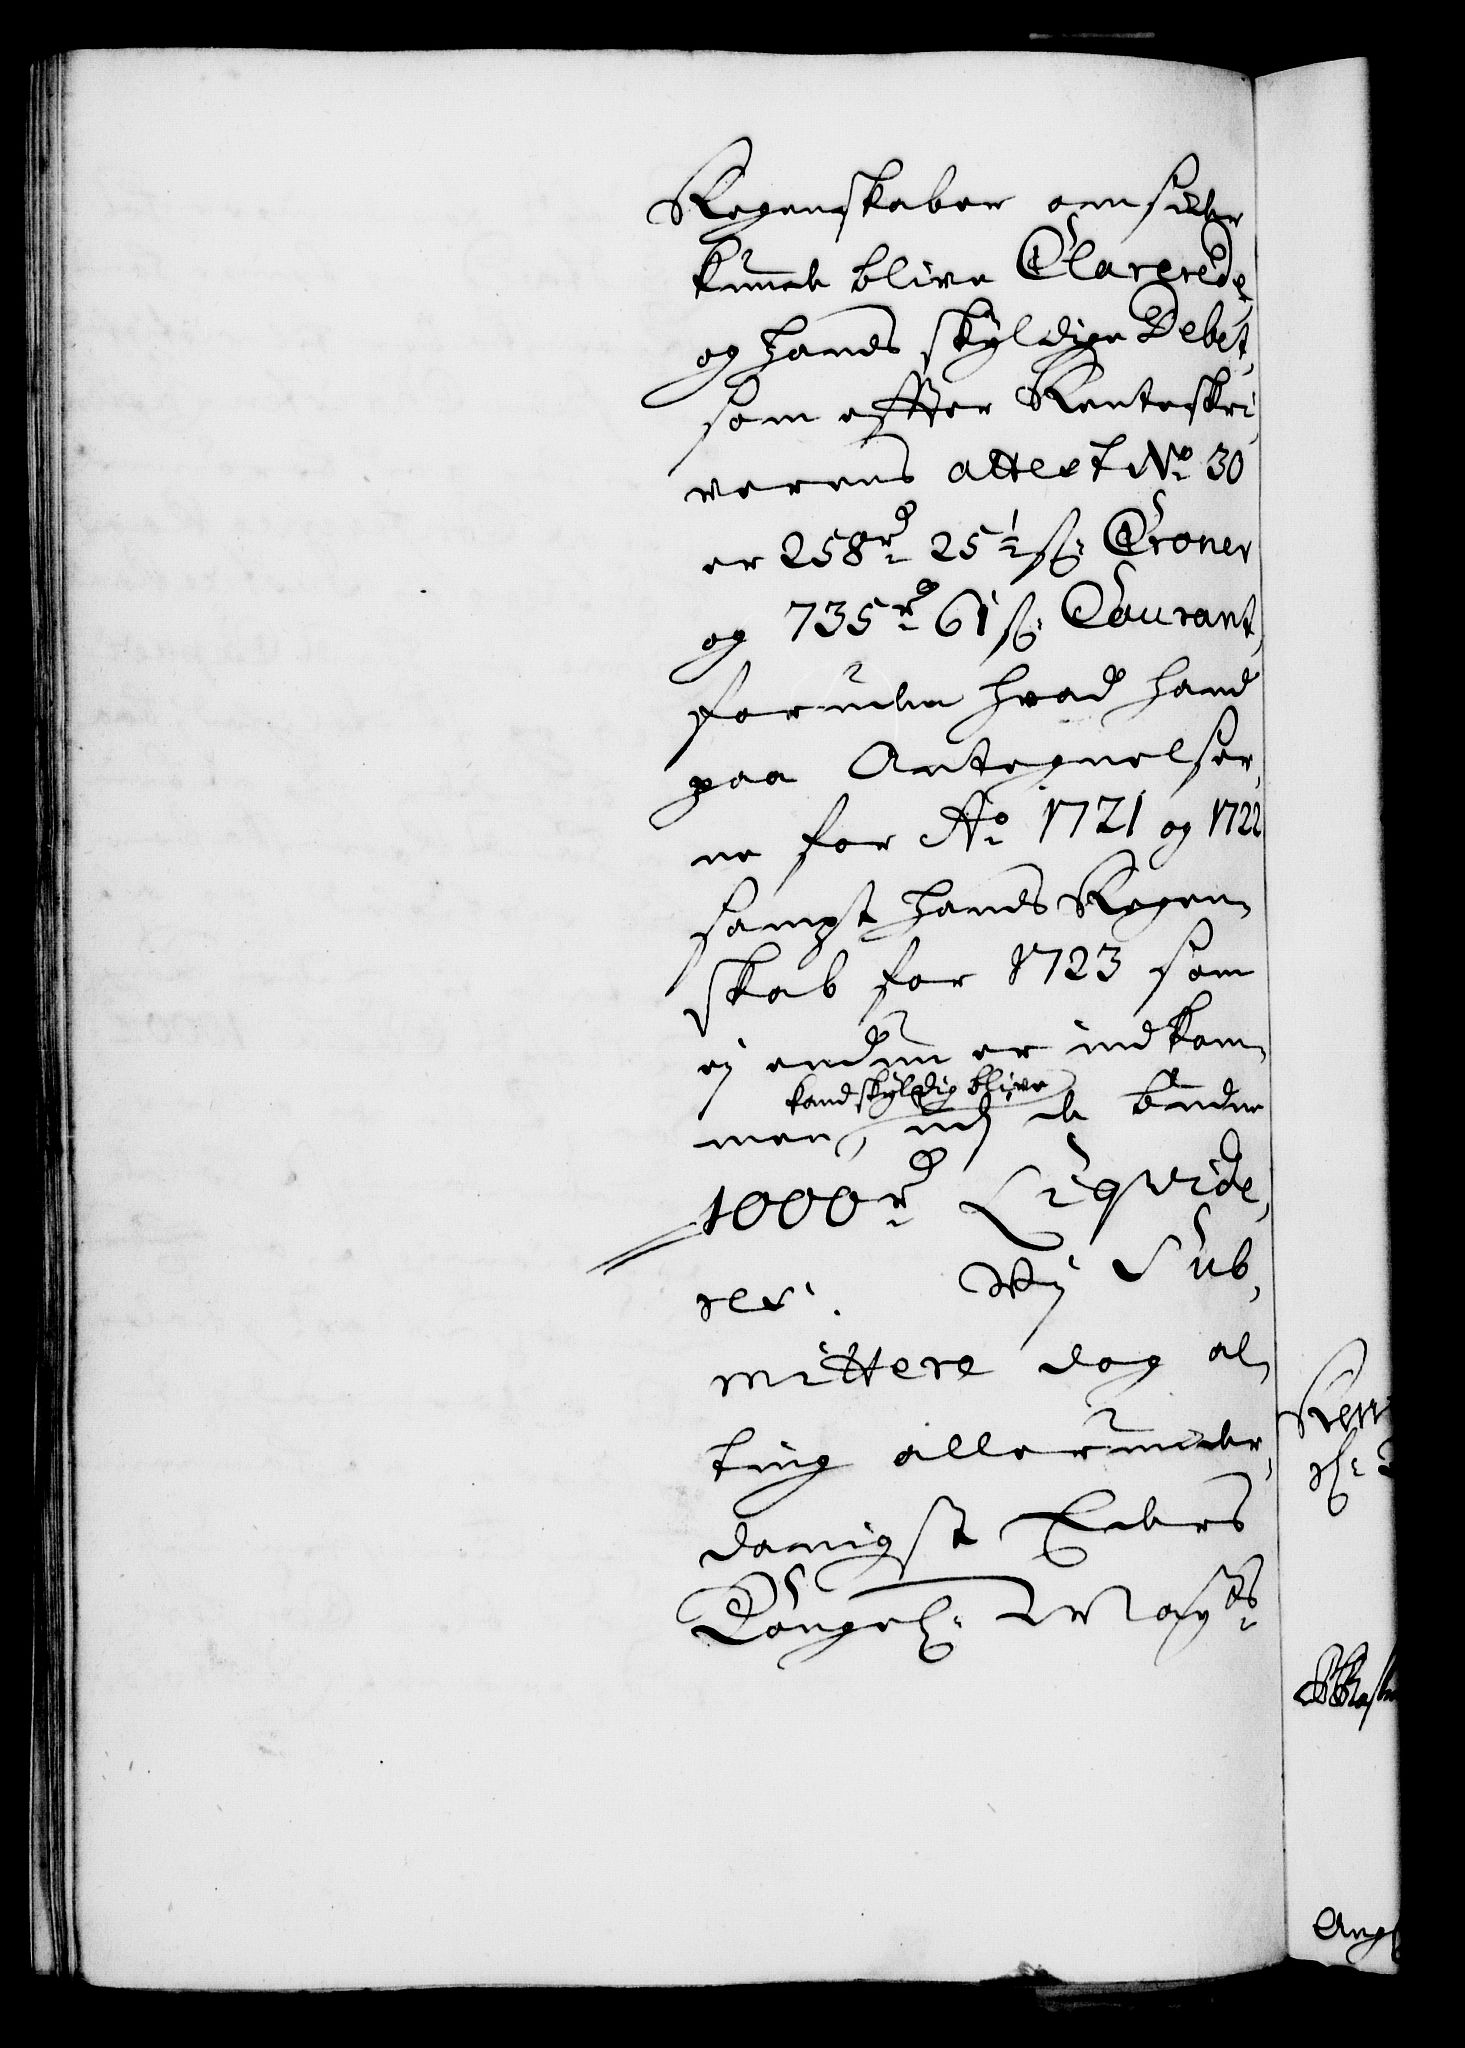 Regenskaber omsider
kunde blive Clarerede,
og hands skyldige Debet,
som effter Renteskri,
verens attest No 30
er 258 rd 25½ sk: Croner
og 735 rd 61 sk: Courant,
foruden hvad hand
paa Antegnelser,
ne for Ao 1721 og 1722
sampt hands Regen,
skab for 1723 som
ej endnu er indkom,
kand skyldig blive
men, ved de budne
1000 rd Liqvide,
res. Wij Sub,
mittere dog al,
ting allerunder,
danigst Eders
Kongel: Mayts